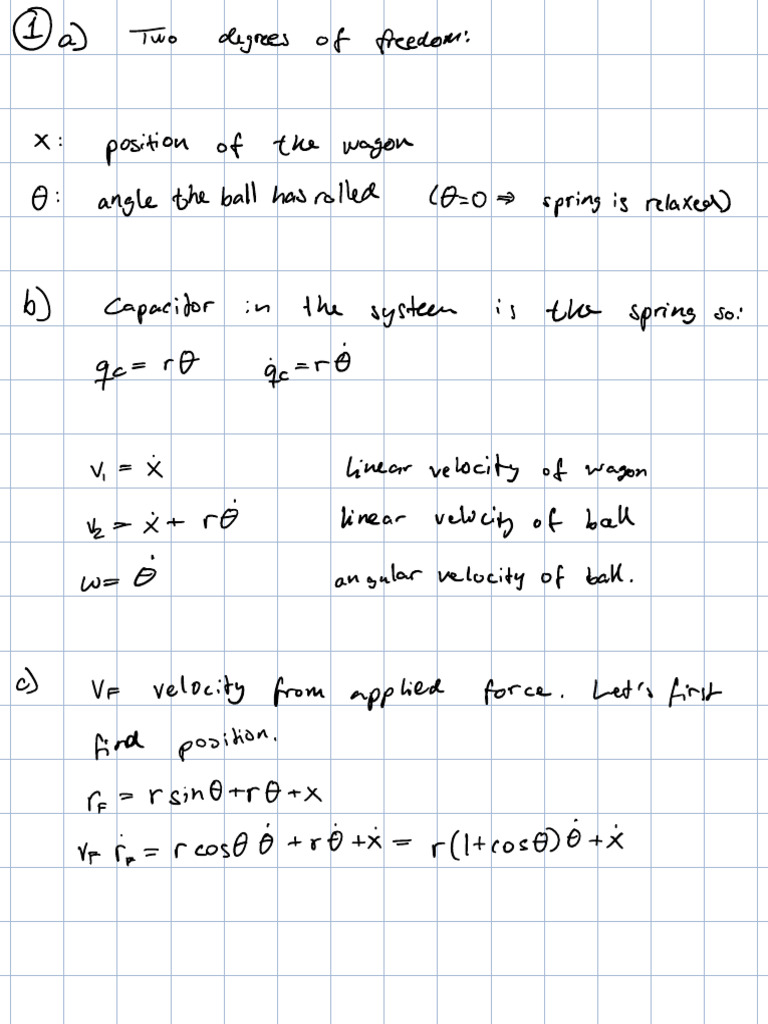 ① a) Two degrees of freedom:
x: position of the wagon
θ: angle the ball has rolled (θ=0 ⇒ spring is relaxed)
b) Capacitor in the system is the spring so:
q_c = rθ   q̇_c = rθ̇
v₁ = ẋ   linear velocity of wagon
v₂ = ẋ + rθ̇   linear velocity of ball
ω = θ̇   angular velocity of ball.
c) v_F velocity from applied force. Let's first
find position.
r_F = r sinθ + rθ + x
v_F ṙ_F = r cosθ θ̇ + rθ̇ + ẋ = r(1+cosθ)θ̇ + ẋ